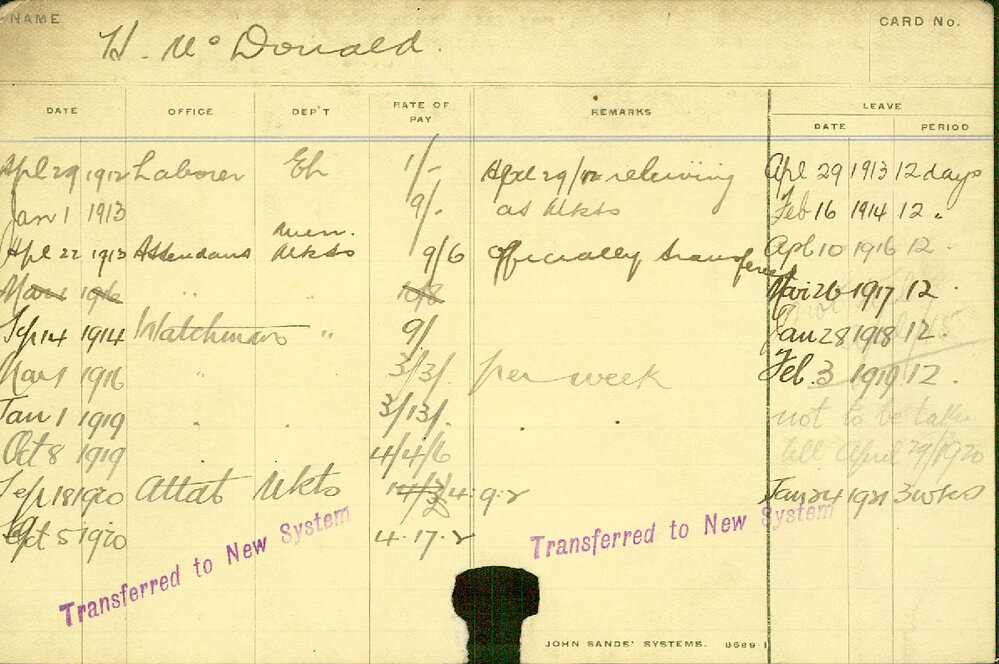 NAME
CARD No.
H. McDonald.
DATE OFFICE DEP'T RATE OF PAY REMARKS LEAVE
DATE PERIOD
Apl 29 1912 Laborer Eh 1/- Apl 29/12 relieving Apl 29 1913 12 days
Jan 1 1913 9/. as Mkts Feb 16 1914 12 "
Mun.
Apl 22 1913 Attendant Mkts 9/6 Officially transferred Apl 10 1916 12 "
Mar 1 1916 " " 10/8 Mar 26 1917 12 "
Sep 14 1914 Watchman " 9/ Jan 28 1918 12 "
Mar 1 1916 " 3/3/. per week Feb. 3 1919 12 "
Jan 1 1919 " " 3/13/. not to be taken
Oct 8 1919 4/4/6 till April 29/1920
Sep 18 1920 Attdt Mkts 4:9:2 Jan 24 1921 3 wks
Oct 5 1920 4.17.2
Transferred to New System
Transferred to New System
JOHN SANDS' SYSTEMS. 8689